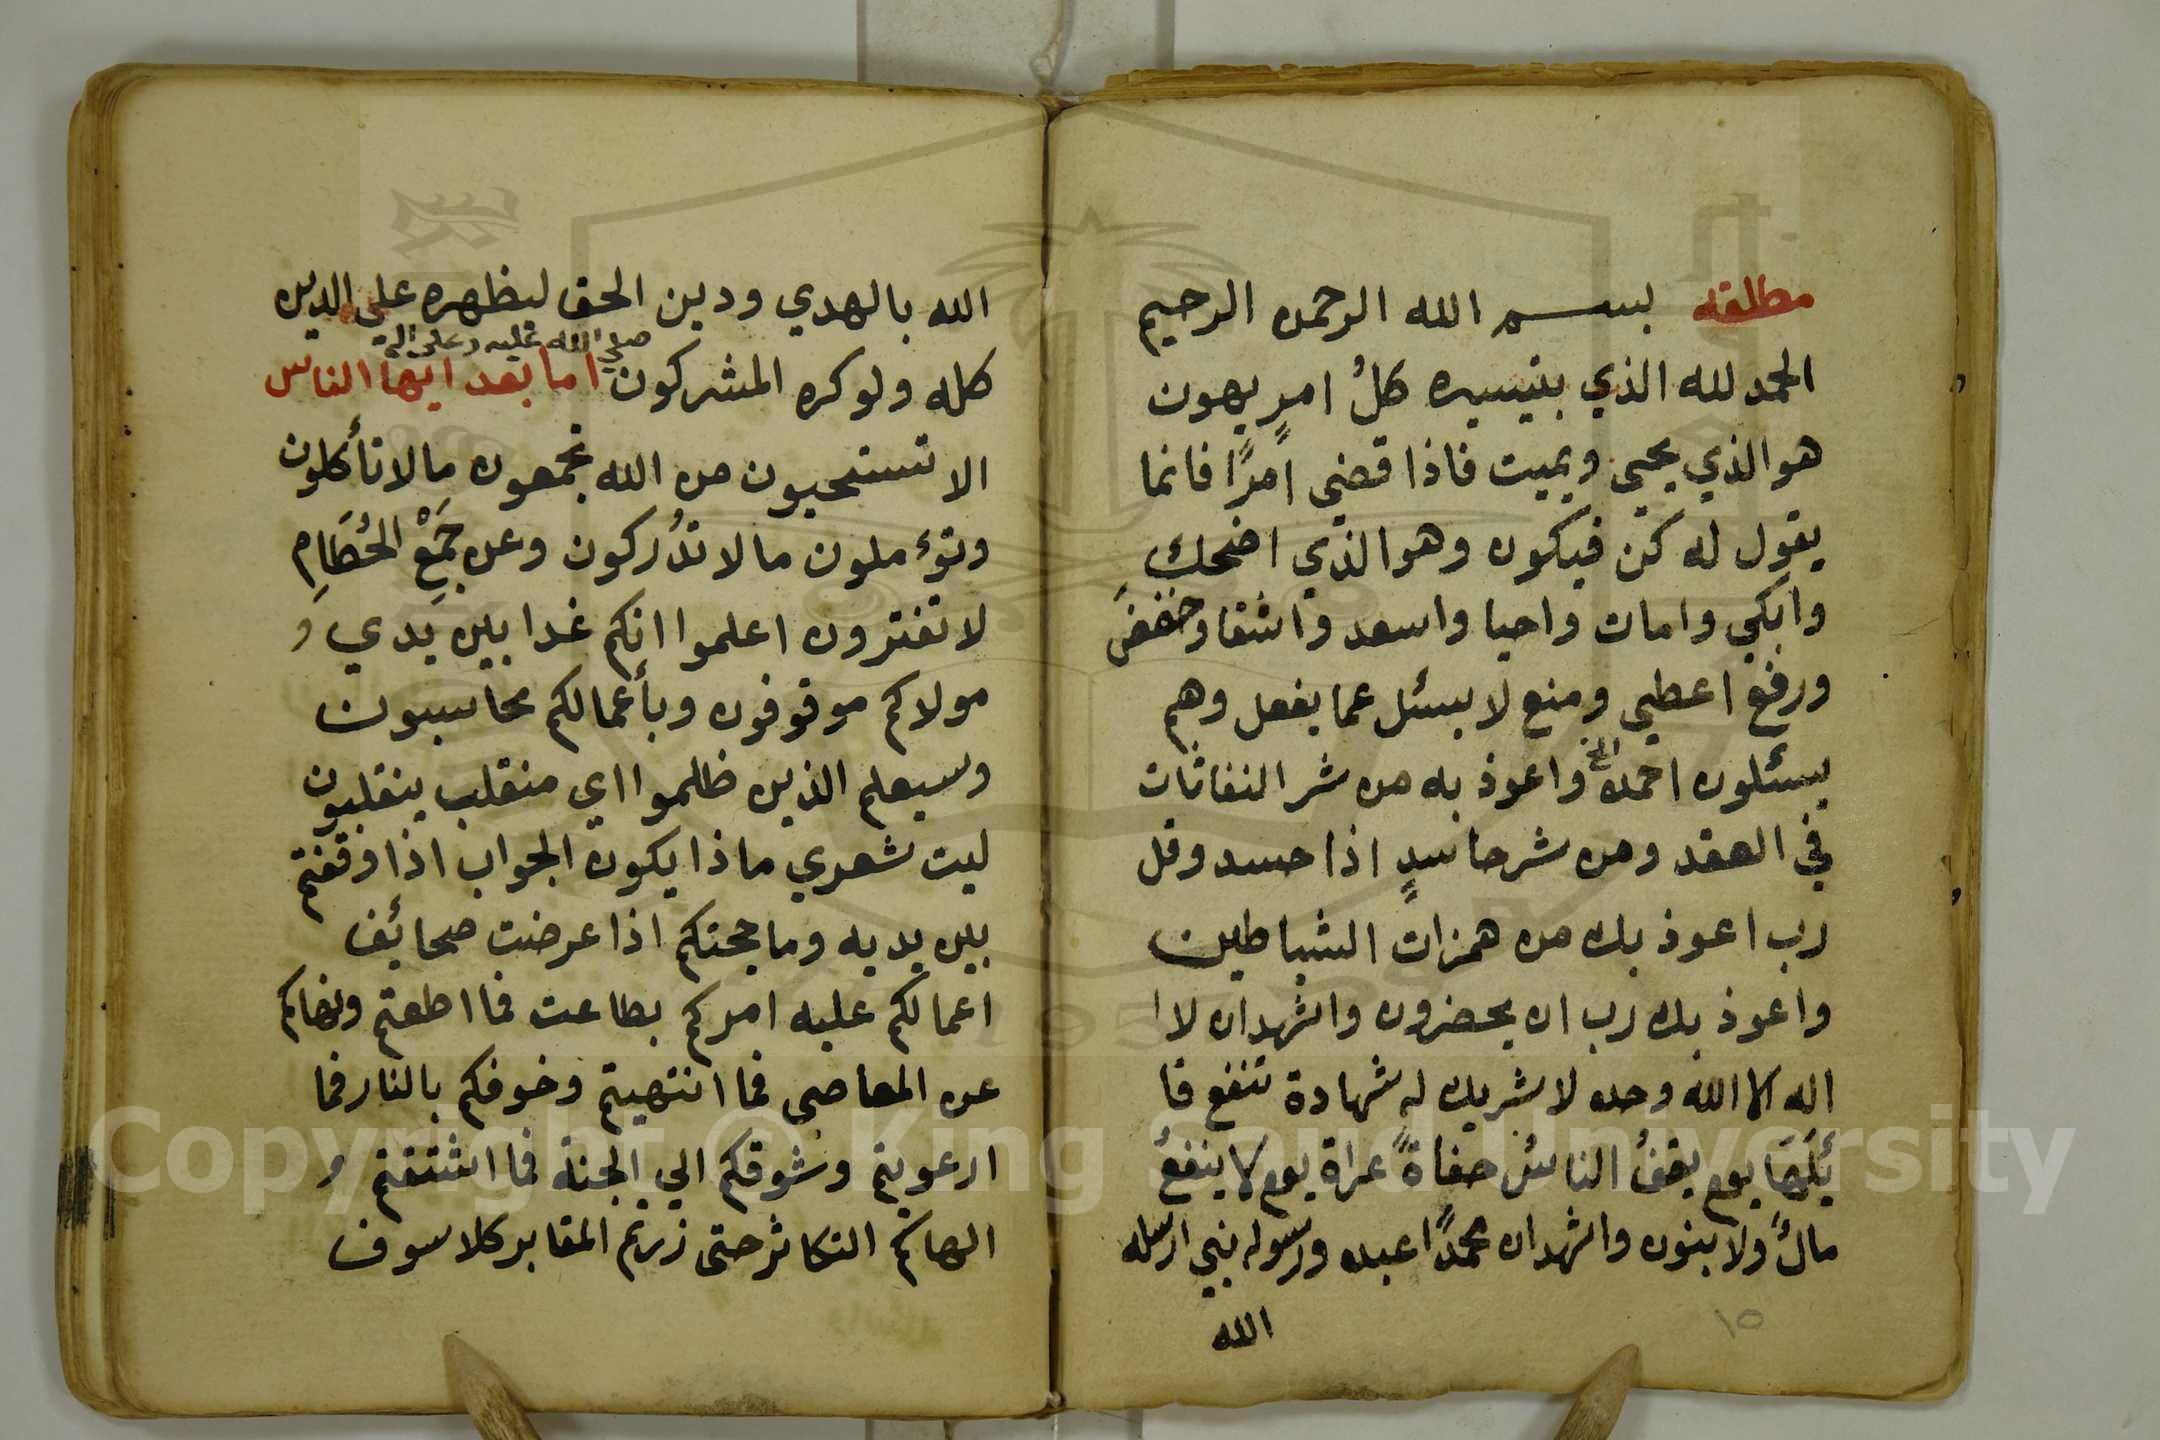 مطلقه بسم الله الرحمن الرحيم
الحمد لله الذي بتيسيره كلُ امرٍ يهون
هو الذي يحيي ويميت فاذا قضي امرًا فانما
يقول له كن فيكون وهو الذي اضحك
وابكي وامات واحيا واسعد واشقا وخفضَ
ورفع اعطي ومنع لا يسئل عما يفعل وهم
يسئلون احمده الخ واعوذ به من شر النفاثات
في العقد ومن شر حاسدٍ اذا حسد وقل
رب اعوذ بك من همزات الشياطين
واعوذ بك رب ان يحضرون واشهد ان لا ا
اله الا الله وحده لا شريك له شهادة تنفع قا
ئلَهَا يوم يقفُ الناسُ حفاةً عراة يوم لا ينفعُ
مالٌ ولا بنون واشهد ان محمدًا عبده ورسوله نبي ارسله
الله
١٥
الله بالهدي ودين الحق ليظهره على الدين
صلي الله عليه وعلى اله
كله ولوكره المشركون اما بعد ايها الناس
الا تستحيون من الله تجمعون مالا تأكلون
وتؤملون مالا تدُركون وعن جَمْعِ الحُطَامِ
لا تفترون اعلموا انكم غدا بين يدي و
مولاكم موقوفون وبأعمالكم محاسبون
وسيعلم الذين ظلموا اي منقلب ينقلبون
ليت شعري ماذا يكون الجواب اذا وقفتم
بين يديه وما حجتكم اذا عرضت صحائف
اعمالكم عليه امركم بطاعت فما اطعتم ونهاكم
عن المعاصي فما انتهيتم وخوفكم بالنار فما
ارعويتم وشوقكم الي الجنة فما اشتقتم و
الهاكم التكاثر حتى زرتم المقابر كلا سوف
Copyright © King Saud University
1957